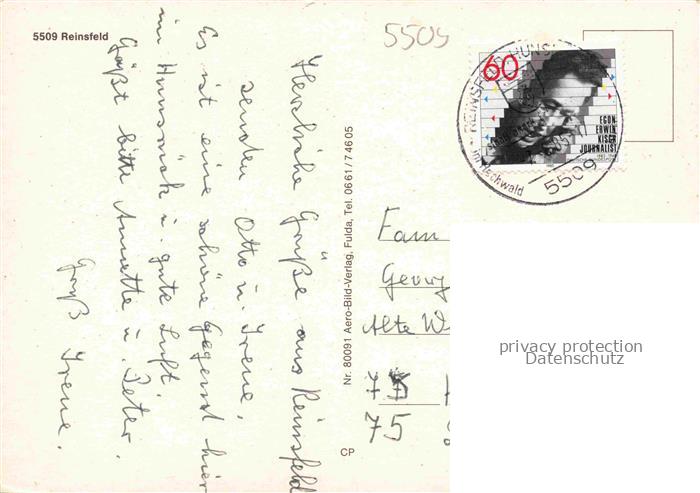 5509 Reinsfeld
5509
Herzliche Grüße aus Reinsfeld
senden Otto u. Irene.
Es ist eine schöne Gegend hier
im Hunsrück u. gute Luft.
Grüßt bitte Annette u. Peter.
Gruß Irene.
Nr. 80091 Aero-Bild-Verlag, Fulda, Tel. 0661/74605
CP
60
EGON
ERWIN
KISCH
JOURNALIST
REINSFELD, HUNS
im Hochwald
5509
Fam
Georg
Alte W
75
75
privacy protection
Datenschutz